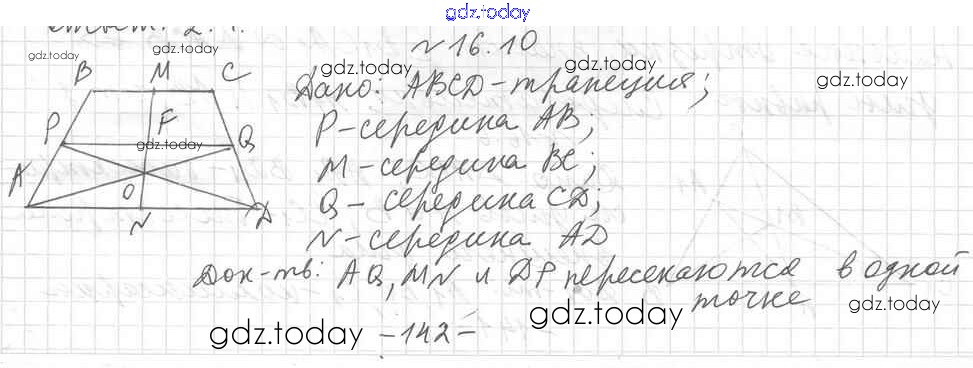 gdz.today
N 16.10
gdz.today gdz.today gdz.today gdz.today gdz.today
Дано: ABCD-трапеция;
P-середина AB;
M-середина BC;
Q-середина CD;
N-середина AD
B M C
P F Q
gdz.today
A O N D
Док-ть: AQ, MN и DP пересекаются в одной
точке
gdz.today gdz.today gdz.today
-142-